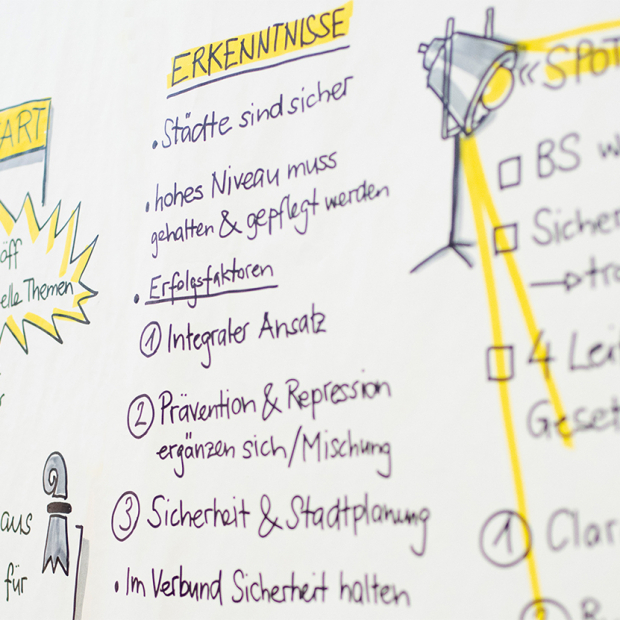 ERKENNTNISSE
• Städte sind sicher
• hohes Niveau muss
gehalten & gepflegt werden
• Erfolgsfaktoren
① Integraler Ansatz
② Prävention & Repression
ergänzen sich/Mischung
③ Sicherheit & Stadtplanung
• Im Verbund Sicherheit halten
ART
öff
elle Themen
aus
für
«SPOT
BS w
Sicher
4 Leit
Geset
① Clar